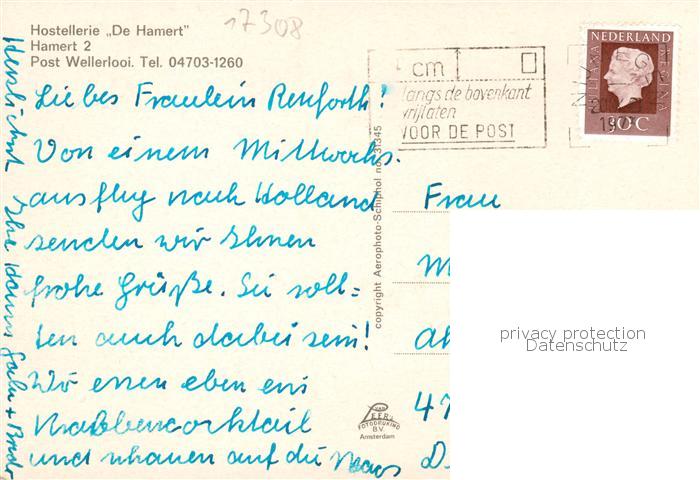 17308
Hostellerie „De Hamert"
Hamert 2
Post Wellerlooi. Tel. 04703-1260
Liebes Fräulein Renforth!
Von einem Mittwochs-
ausflug nach Holland
senden wir Ihnen
frohe Grüße. Sie soll=
ten auch dabei sein!
Wir essen eben ein
Krabbencocktail
und schauen auf die Maas
Herzlichst Ihre Hanns
cm
langs de bovenkant
vrijlaten
VOOR DE POST
NEDERLAND
JULIANA REGINA
90C
copyright Aerophoto-Schiphol no. 31345
VAN LEER's
FOTODRUKIND
B.V.
Amsterdam
Frau
M
47
D.
privacy protection
Datenschutz